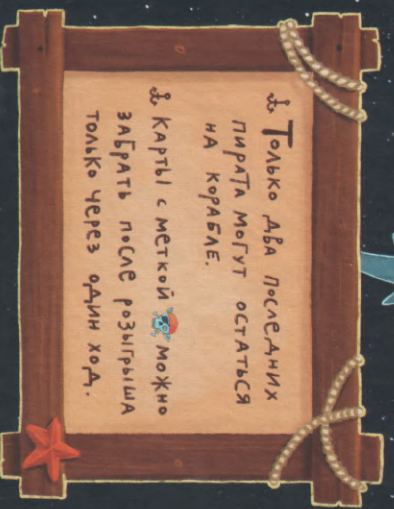 Только два последних
пирата могут остаться
на корабле.
Карты с меткой можно
забрать после розыгрыша
только через один ход.